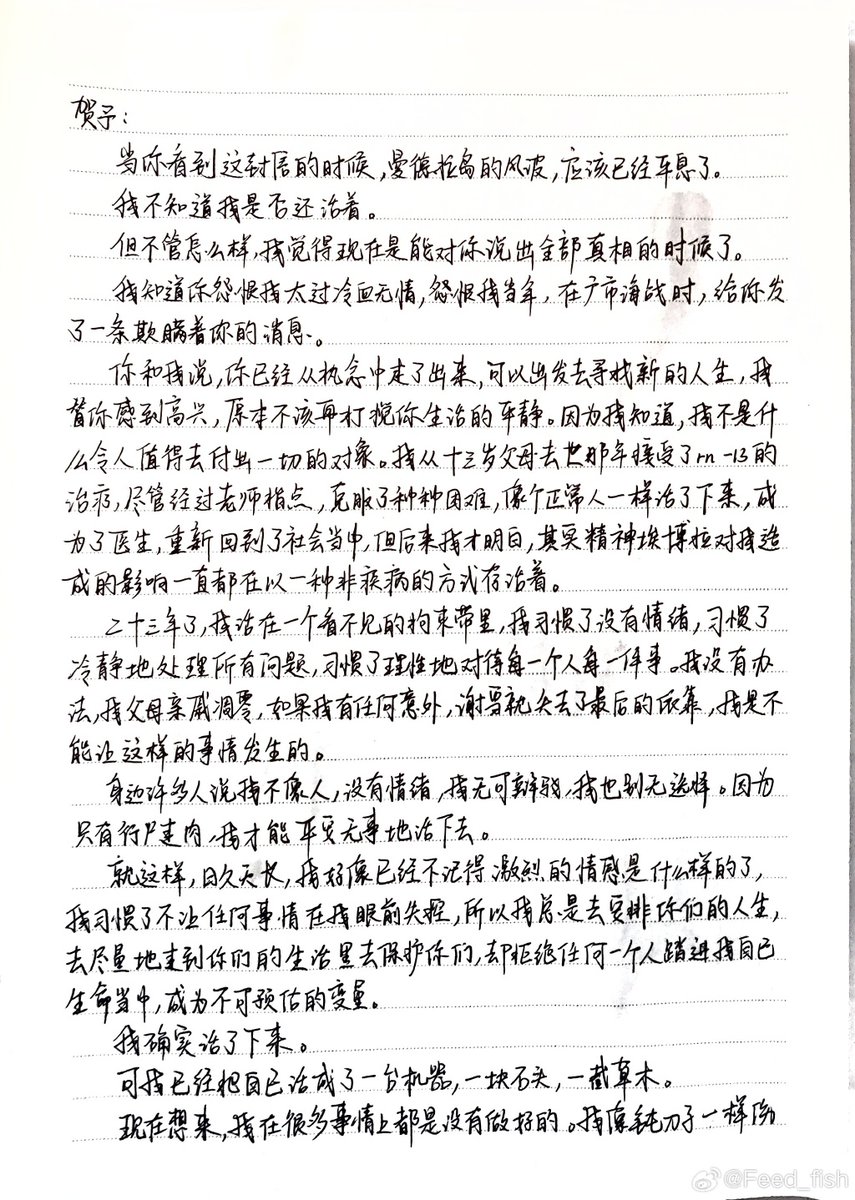 贺予：
当你看到这封信的时候，曼德拉岛的风波，应该已经平息了。
我不知道我是否还活着。
但不管怎么样，我觉得现在是能对你说出全部真相的时候了。
我知道你怨恨我太过冷血无情，怨恨我当年，在广市海战时，给你发
了一条欺瞒着你的消息。
你和我说，你已经从执念中走了出来，可以出发去寻找新的人生，我
替你感到高兴，原本不该再打搅你生活的平静。因为我知道，我不是什
么令人值得去付出一切的对象。我从十三岁父母去世那年接受了rn-13的
治疗，尽管经过老师指点，克服了种种困难，像个正常人一样活了下来，成
为了医生，重新回到了社会当中，但后来我才明白，其实精神埃博拉对我造
成的影响一直都在以一种非疾病的方式存活着。
二十三年了，我活在一个看不见的拘束带里，我习惯了没有情绪，习惯了
冷静地处理所有问题，习惯了理性地对待每一个人每一件事。我没有办
法，我父母亲戚凋零，如果我有任何意外，谢雪就失去了最后的依靠，我是不
能让这样的事情发生的。
身边许多人说我不像人，没有情绪，我无可辩驳，我也别无选择。因为
只有行尸走肉，我才能平安无事地活下去。
就这样，日久天长，我好像已经不记得激烈的情感是什么样的了，
我习惯了不让任何事情在我眼前失控，所以我总是去安排你们的人生，
去尽量地走到你们的生活里去保护你们，却拒绝任何一个人踏进我自己
生命当中，成为不可预估的变量。
我确实活了下来。
可我已经把自己活成了一台机器，一块石头，一截草木。
现在想来，我在很多事情上都是没有做好的。我像钝刀子一样
@Feed_fish